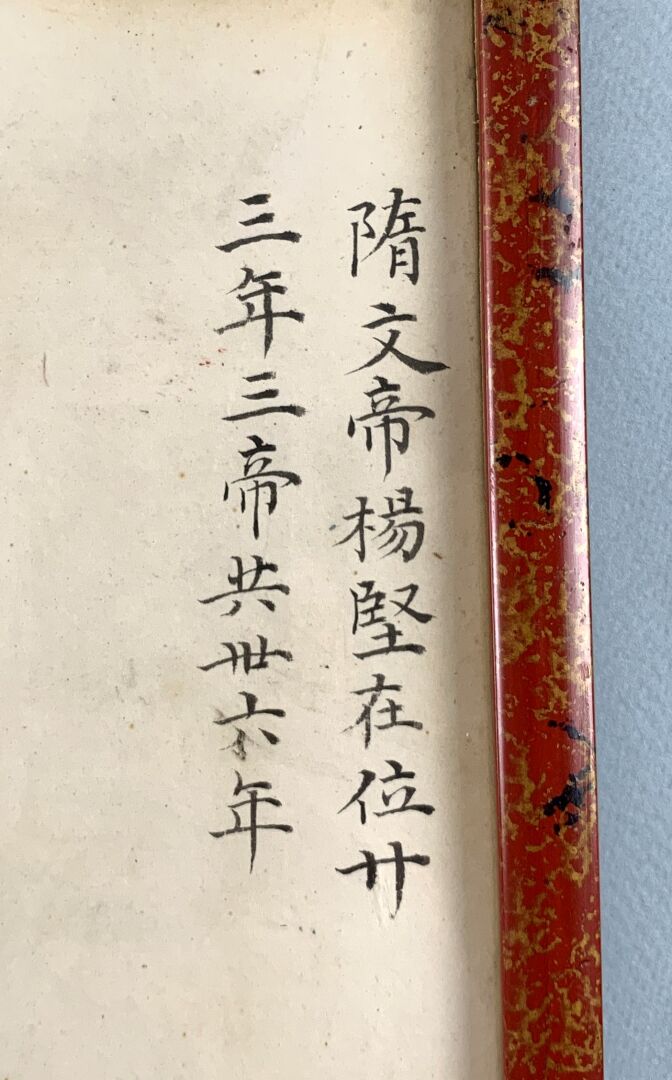 隋文帝楊堅在位廿
三年三帝共卅六年